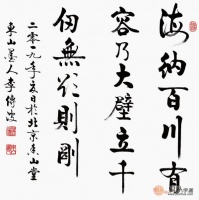 海納百川有
容乃大壁立千
仞無欲則剛
二零一九年夏日於北京香山堂
東山墨人李傳波